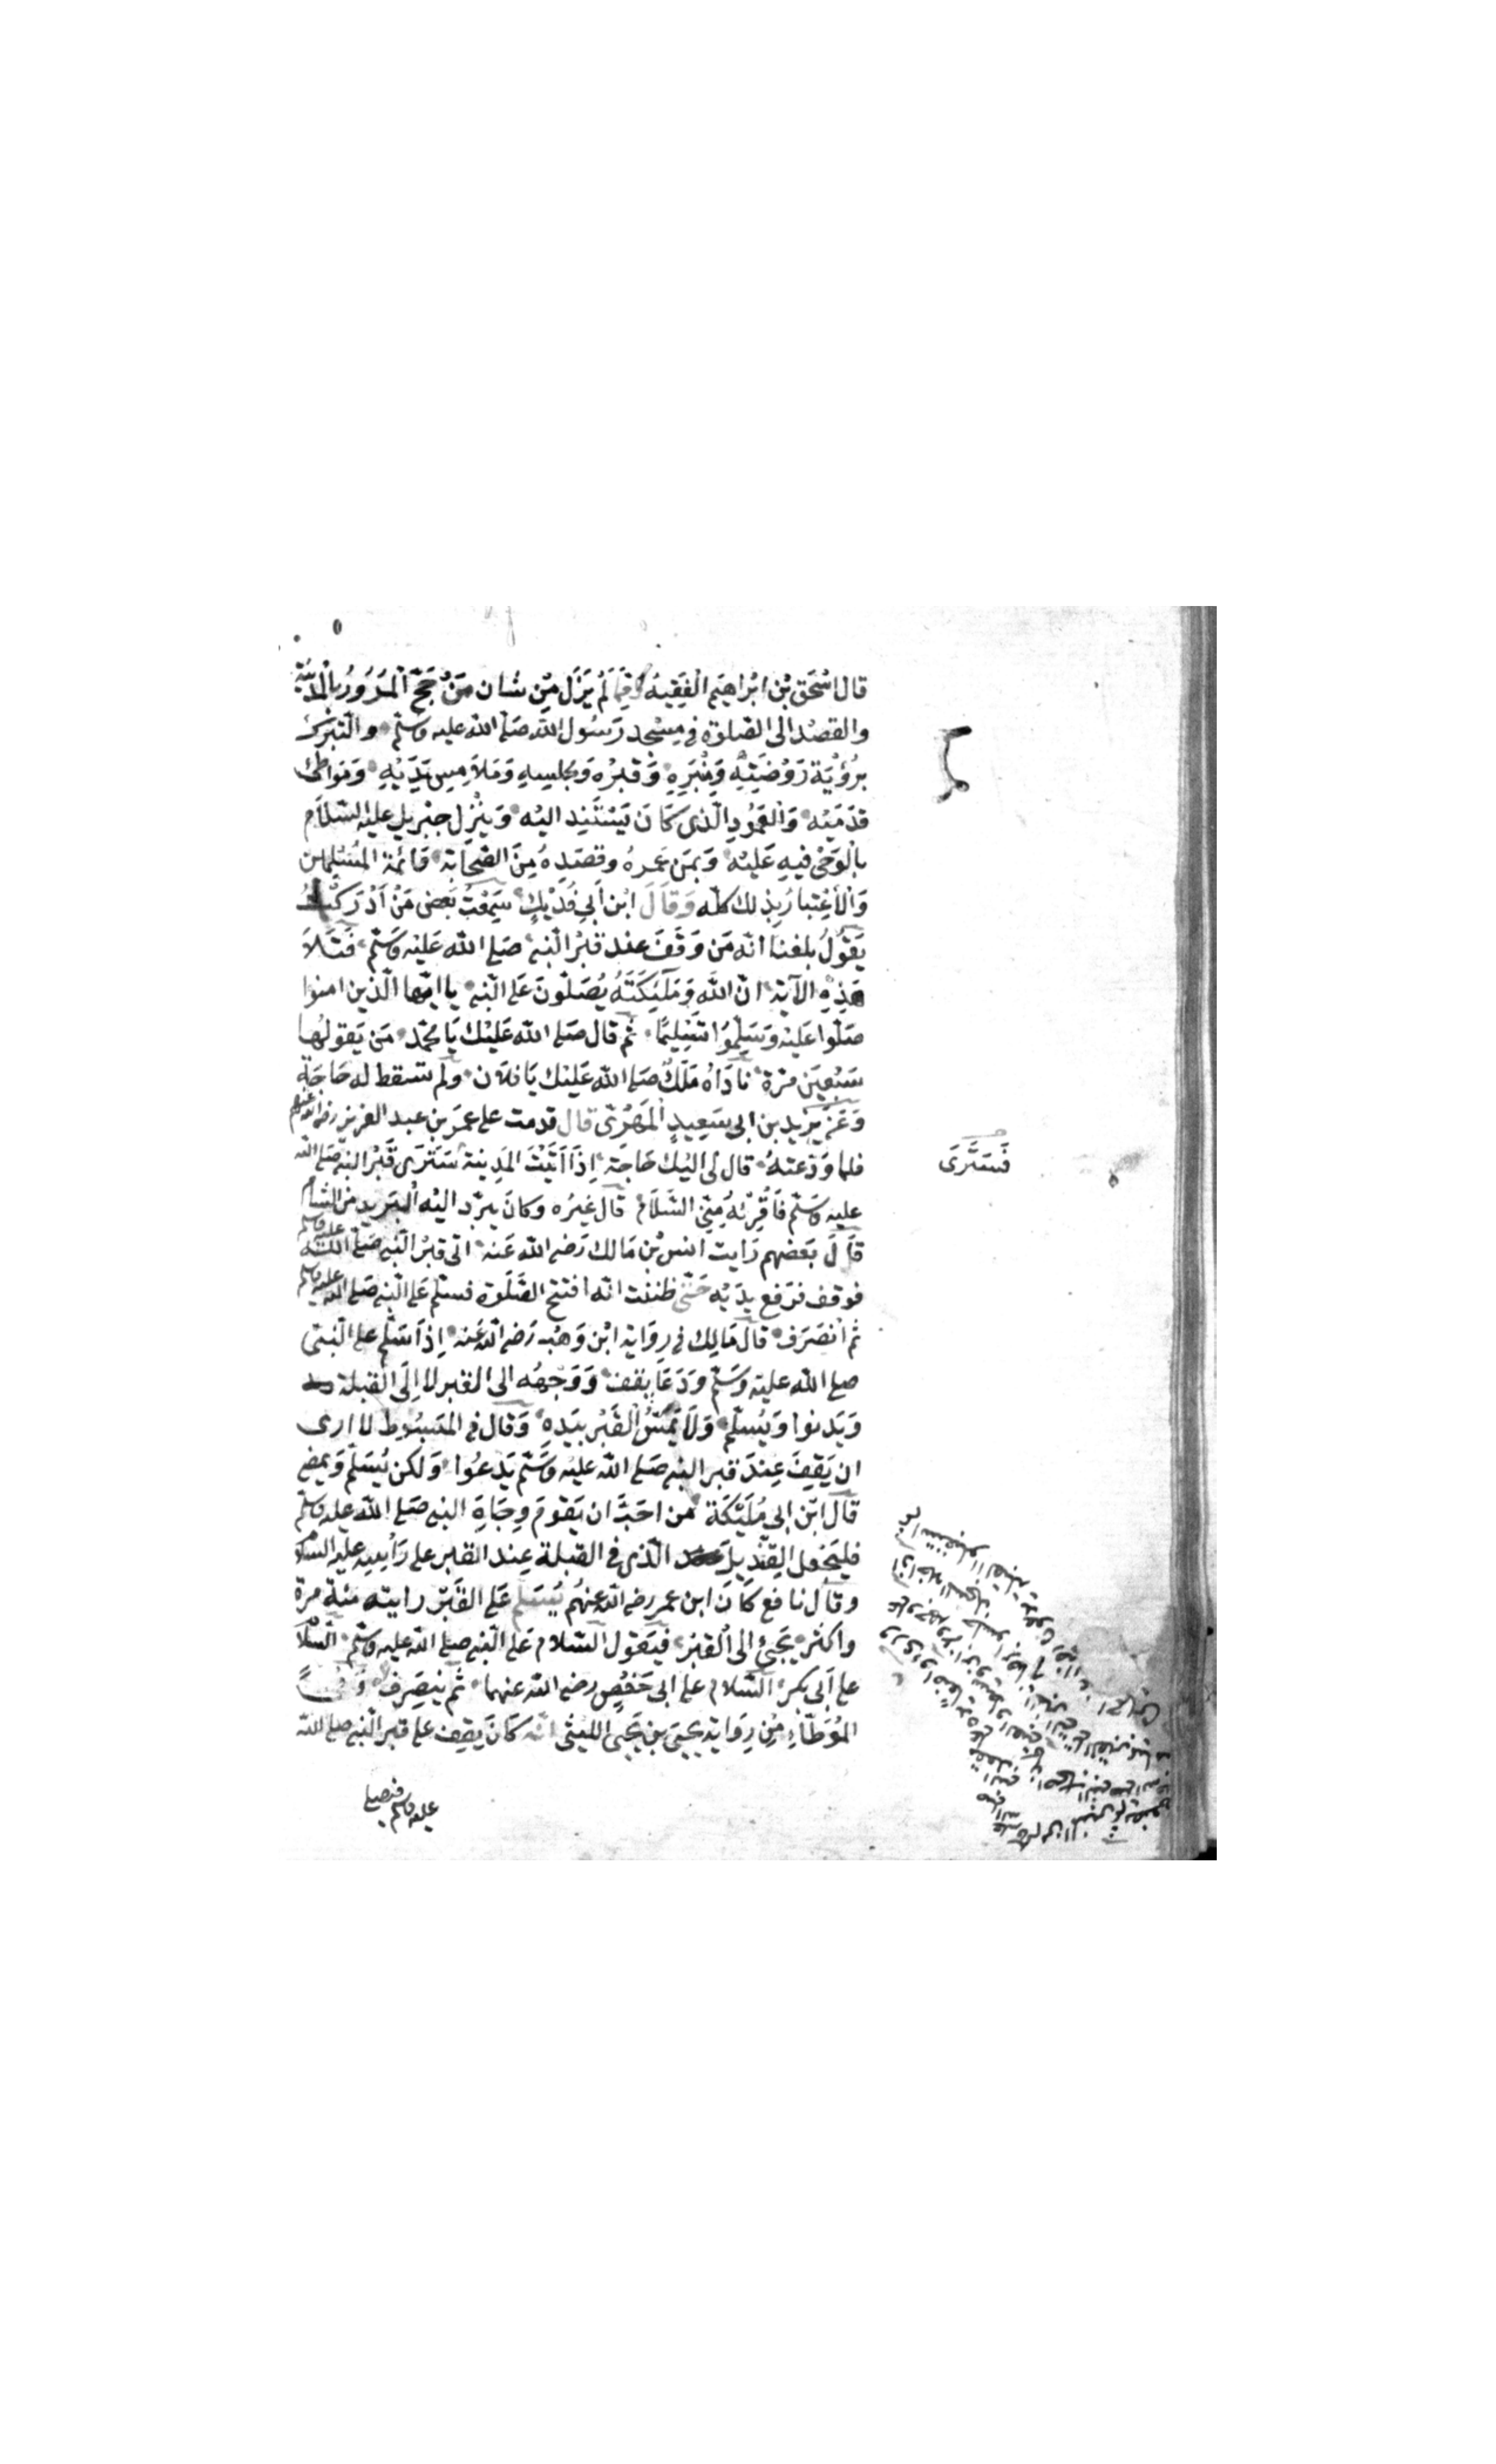 قال اسْحَق بْن ابْراهيَم الفَقِيهُ وَمِمّا لَمْ يَزَلْ مِنْ شان مَنْ حَجَّ المُرُورُ بالمَدِينَة
والقصْد الى الصَّلوٰةِ في مسْجد رَسُول الله صَلى الله عليه وسَلّم والتبَرّك
برُؤيَة رَوْضَتِهِ وَمِنْبَرِهِ وَقبْرِه وَمجلسِهِ وَمَلاَمِس يَدَيْهِ وَمَوَاطِئ
قدَمَيْه وَالعَمُودِ الّذى كَانَ يَسْتَنِد اليْه وَينْزل جبْريل عليْه السَّلاَم
بالْوَحْى فيهِ عَلَيْه وَبمَنْ عَمرهُ وقصَدهُ مِنَ الصَّحَابَة وَائمَة المُسْلِمين
وَالاعْتِبَارُ بِذلك كلّه وَقَالَ ابْن أبي فُدَيْكٍ سَمِعْتُ بَعْض مَنْ اَدْرَكْتُ
يَقوُلُ بلغنا انّه مَن وَقَفَ عند قبْر النّبي صَلى الله عَليْه وَسَلّم فَتَلاَ
هَذِهِ الآية انّ اللهَ وَمَلَئِكَتَهُ يُصَلّونَ عَلى النّبي ياايّها الّذين امنوا
صَلّوا عَليْه وَسَلِّمُوا تَسْلِيمًا ثم قال صَلى الله عَليْك يَا محمّد مَن يَقولهَا
سَبْعِين مَرّة نادَاهُ مَلَكٌ صَلى الله عَليْك يَا فلان ولم تسقط له حَاجَة
وَعَنْ يزيد بن ابي سَعيدٍ المَهْرىّ قال قدمت على عمَر بن عبد العزيز رضى الله عنهم
فلما وَدّعته قال لى اليْك حَاجَة اِذَا اَتَيْتَ المَدِينة سَتَرَى قَبْر النبي صَلى الله
عليه وَسَلّم فَاَقْرِئْهُ مِنِّى السَّلاَمَ قال غيْرُه وكانَ يبْرد اليْه البَريد من الشام
قَالَ بَعْضهم رَايت انس بْن مَالك رَضى الله عَنه اتى قبْر النّبي صَلى الله عليه وسلم
فوقف فرَفع يدَيْه حَتّى ظننت انّه افتتح الصَّلَوة فسلّم عَلى النّبي صَلى الله عليه وسلم
ثم انْصَرَف قال مَالِك في روَاية ابْن وَهْب رَضى الله عَنه اِذا سَلّم على النّبي
صلى الله عليْه وَسَلّم وَدَعَا يقف وَوَجْهُه الى القبر لا اِلَى القبلة
وَيَدنوا وَيُسلّم وَلاَ يَمَسُّ القَبْر بيَدِهِ وَقال في المَبْسُوط لا ارى
ان يَقِفَ عِندَ قبر النبي صَلى الله عليْه وَسَّلَم يَدعُوا وَلكن يُسَلّم وَيمضى
قال ابْن ابي مُلَيْكَة من احَبَّ ان يَقومَ وِجَاهَ النبي صَلى الله عليه وسلم
فليَجْعل القِنْديل الّذي في القبلة عِند القبر على رَأسِهِ عليه السّلام
وقال نافع كَانَ ابن عمر رضى الله عنهُم يُسَلّم عَلى القَبْر رايته مئة مرّة
واكثر يَجيْئ الى القبْر فيَقول السّلام عَلى النّبي صلى الله عليه وسلّم السّلام
على اَبي بكر السّلام على ابى حَفْصٍ رضى الله عنهما ثم ينْصَرِف
المُوَطّأ مِنْ رِوَاية يحيى بن يَحيى الليثى انّه كَانَ يقِف على قبر النّبي صلى الله
عليه وسلم فيصلى
فَسَتَرَى